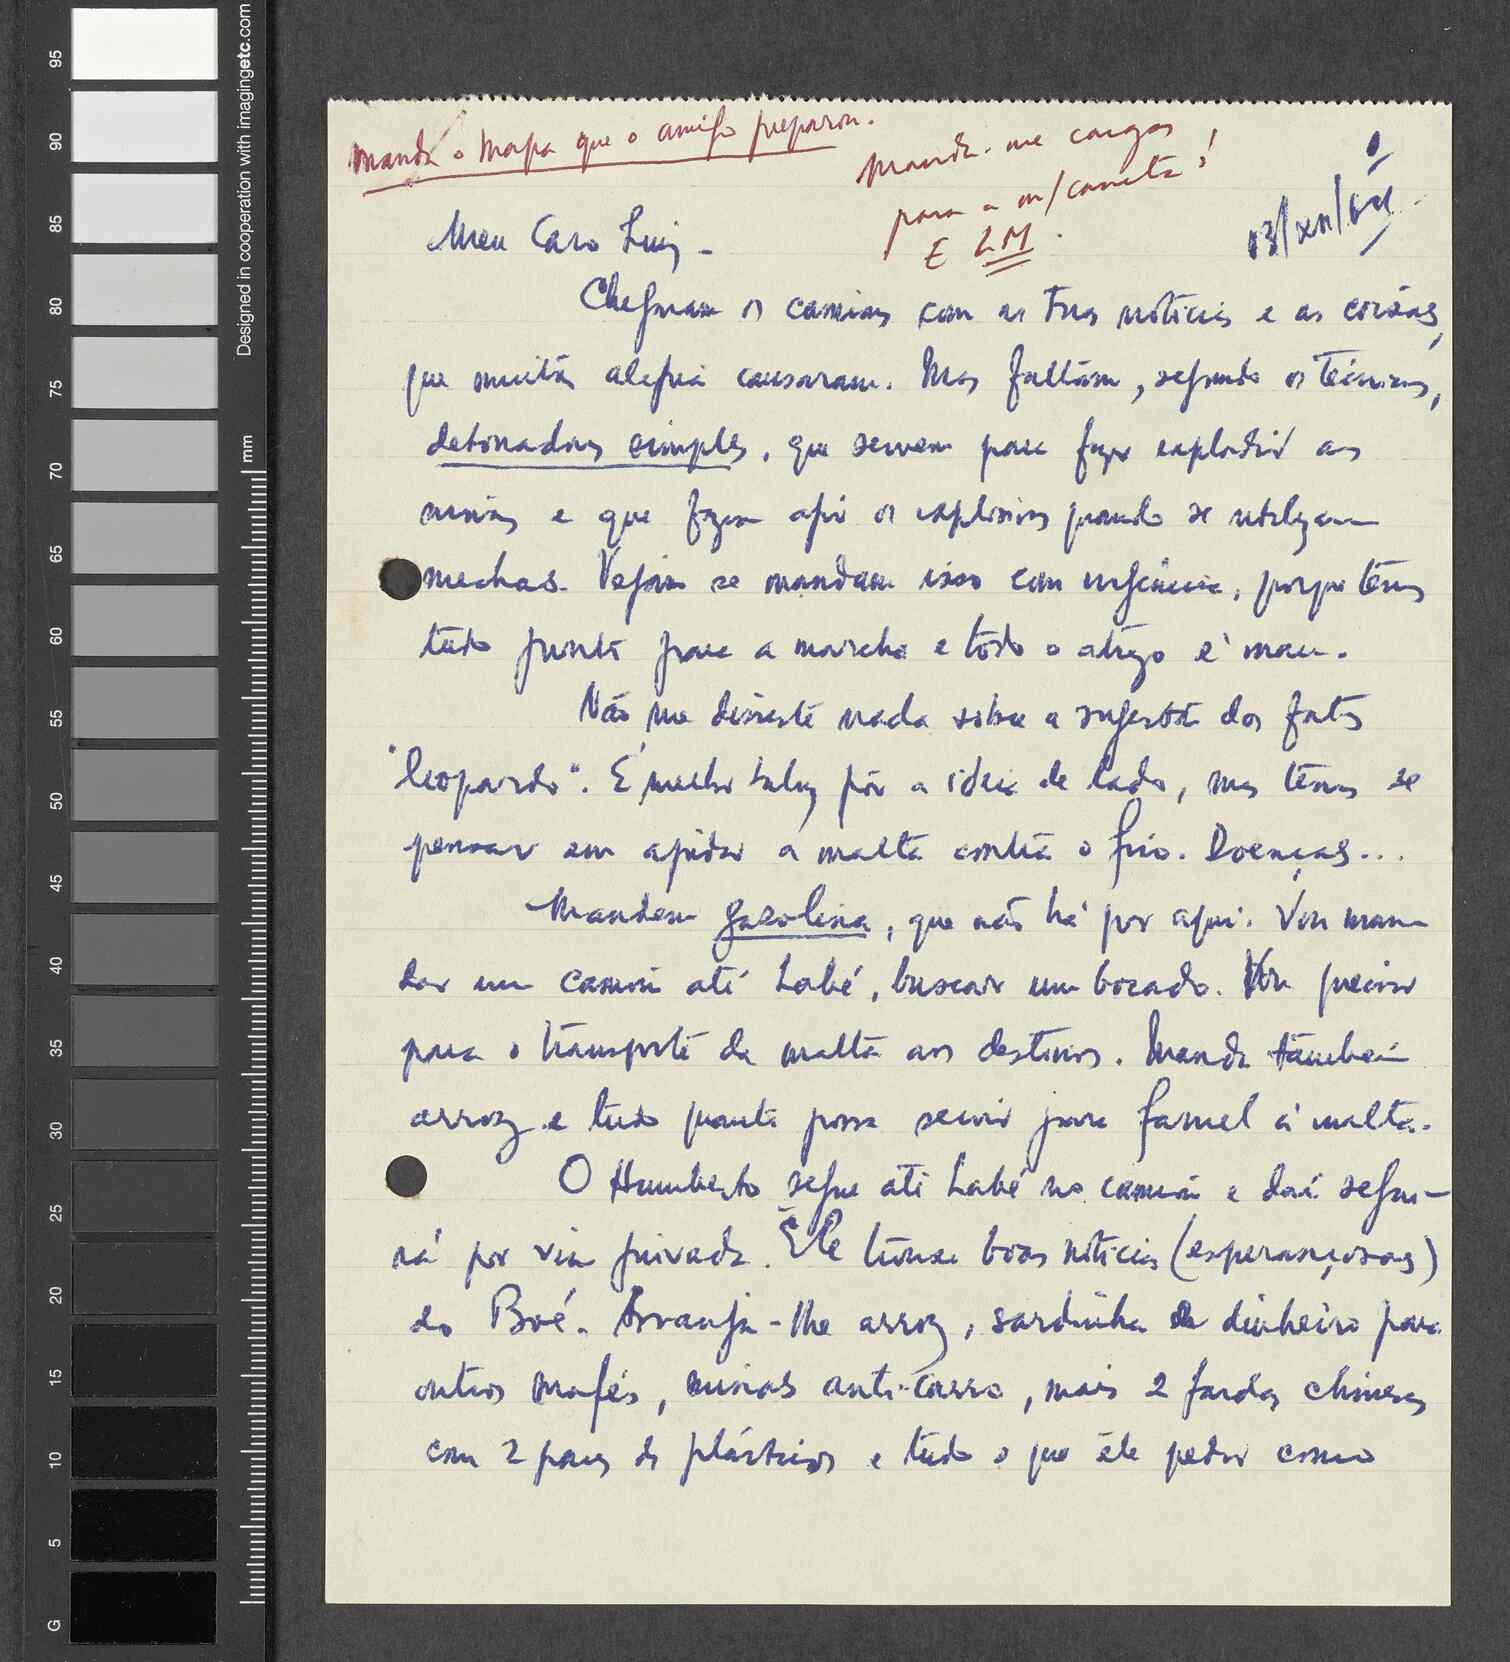 95
90
85
80
75
70
65
60
55
50
45
40
35
30
25
20
15
10
5
G
mm
Designed in cooperation with imagingetc.com
Manda o Mapa que o amigo preparou.
Manda-me cargas
para a m/caneta!
E LM.
Meu Caro Luiz -
Chegaram os camions com as tuas notícias e as coisas,
que muita alegria causaram. Mas faltam, segundo os técnicos,
detonadores simples, que servem para fazer explodir as
minas e que fazem agir os explosivos quando se utilizam
mechas. Vejam se mandam isso com urgência, porque temos
tudo pronto para a marcha e todo o atrazo é mau.
Não me disseste nada sobre a sugestão dos fatos
"leopardo". É melhor talvez pôr a ideia de lado, mas temos de
pensar em ajudar a malta contra o frio. Doenças...
Mandem gazolina, que não há por aqui. Vou man
dar um camion até Labé, buscar um bocado. Vou precisar
para o transporte da malta aos destinos. Manda também
arroz e tudo quanto possa servir para farnel à malta.
O Humberto segue até Labé no camion e daí segui-
rá por via privada. Êle trouxe boas notícias (esperançosas)
do Boé. Arranja-lhe arroz, sardinha e dinheiro para
outros mafés, minas anti-carro, mais 2 fardas chinesas
com 2 pares de plásticos e tudo o que êle pedir como